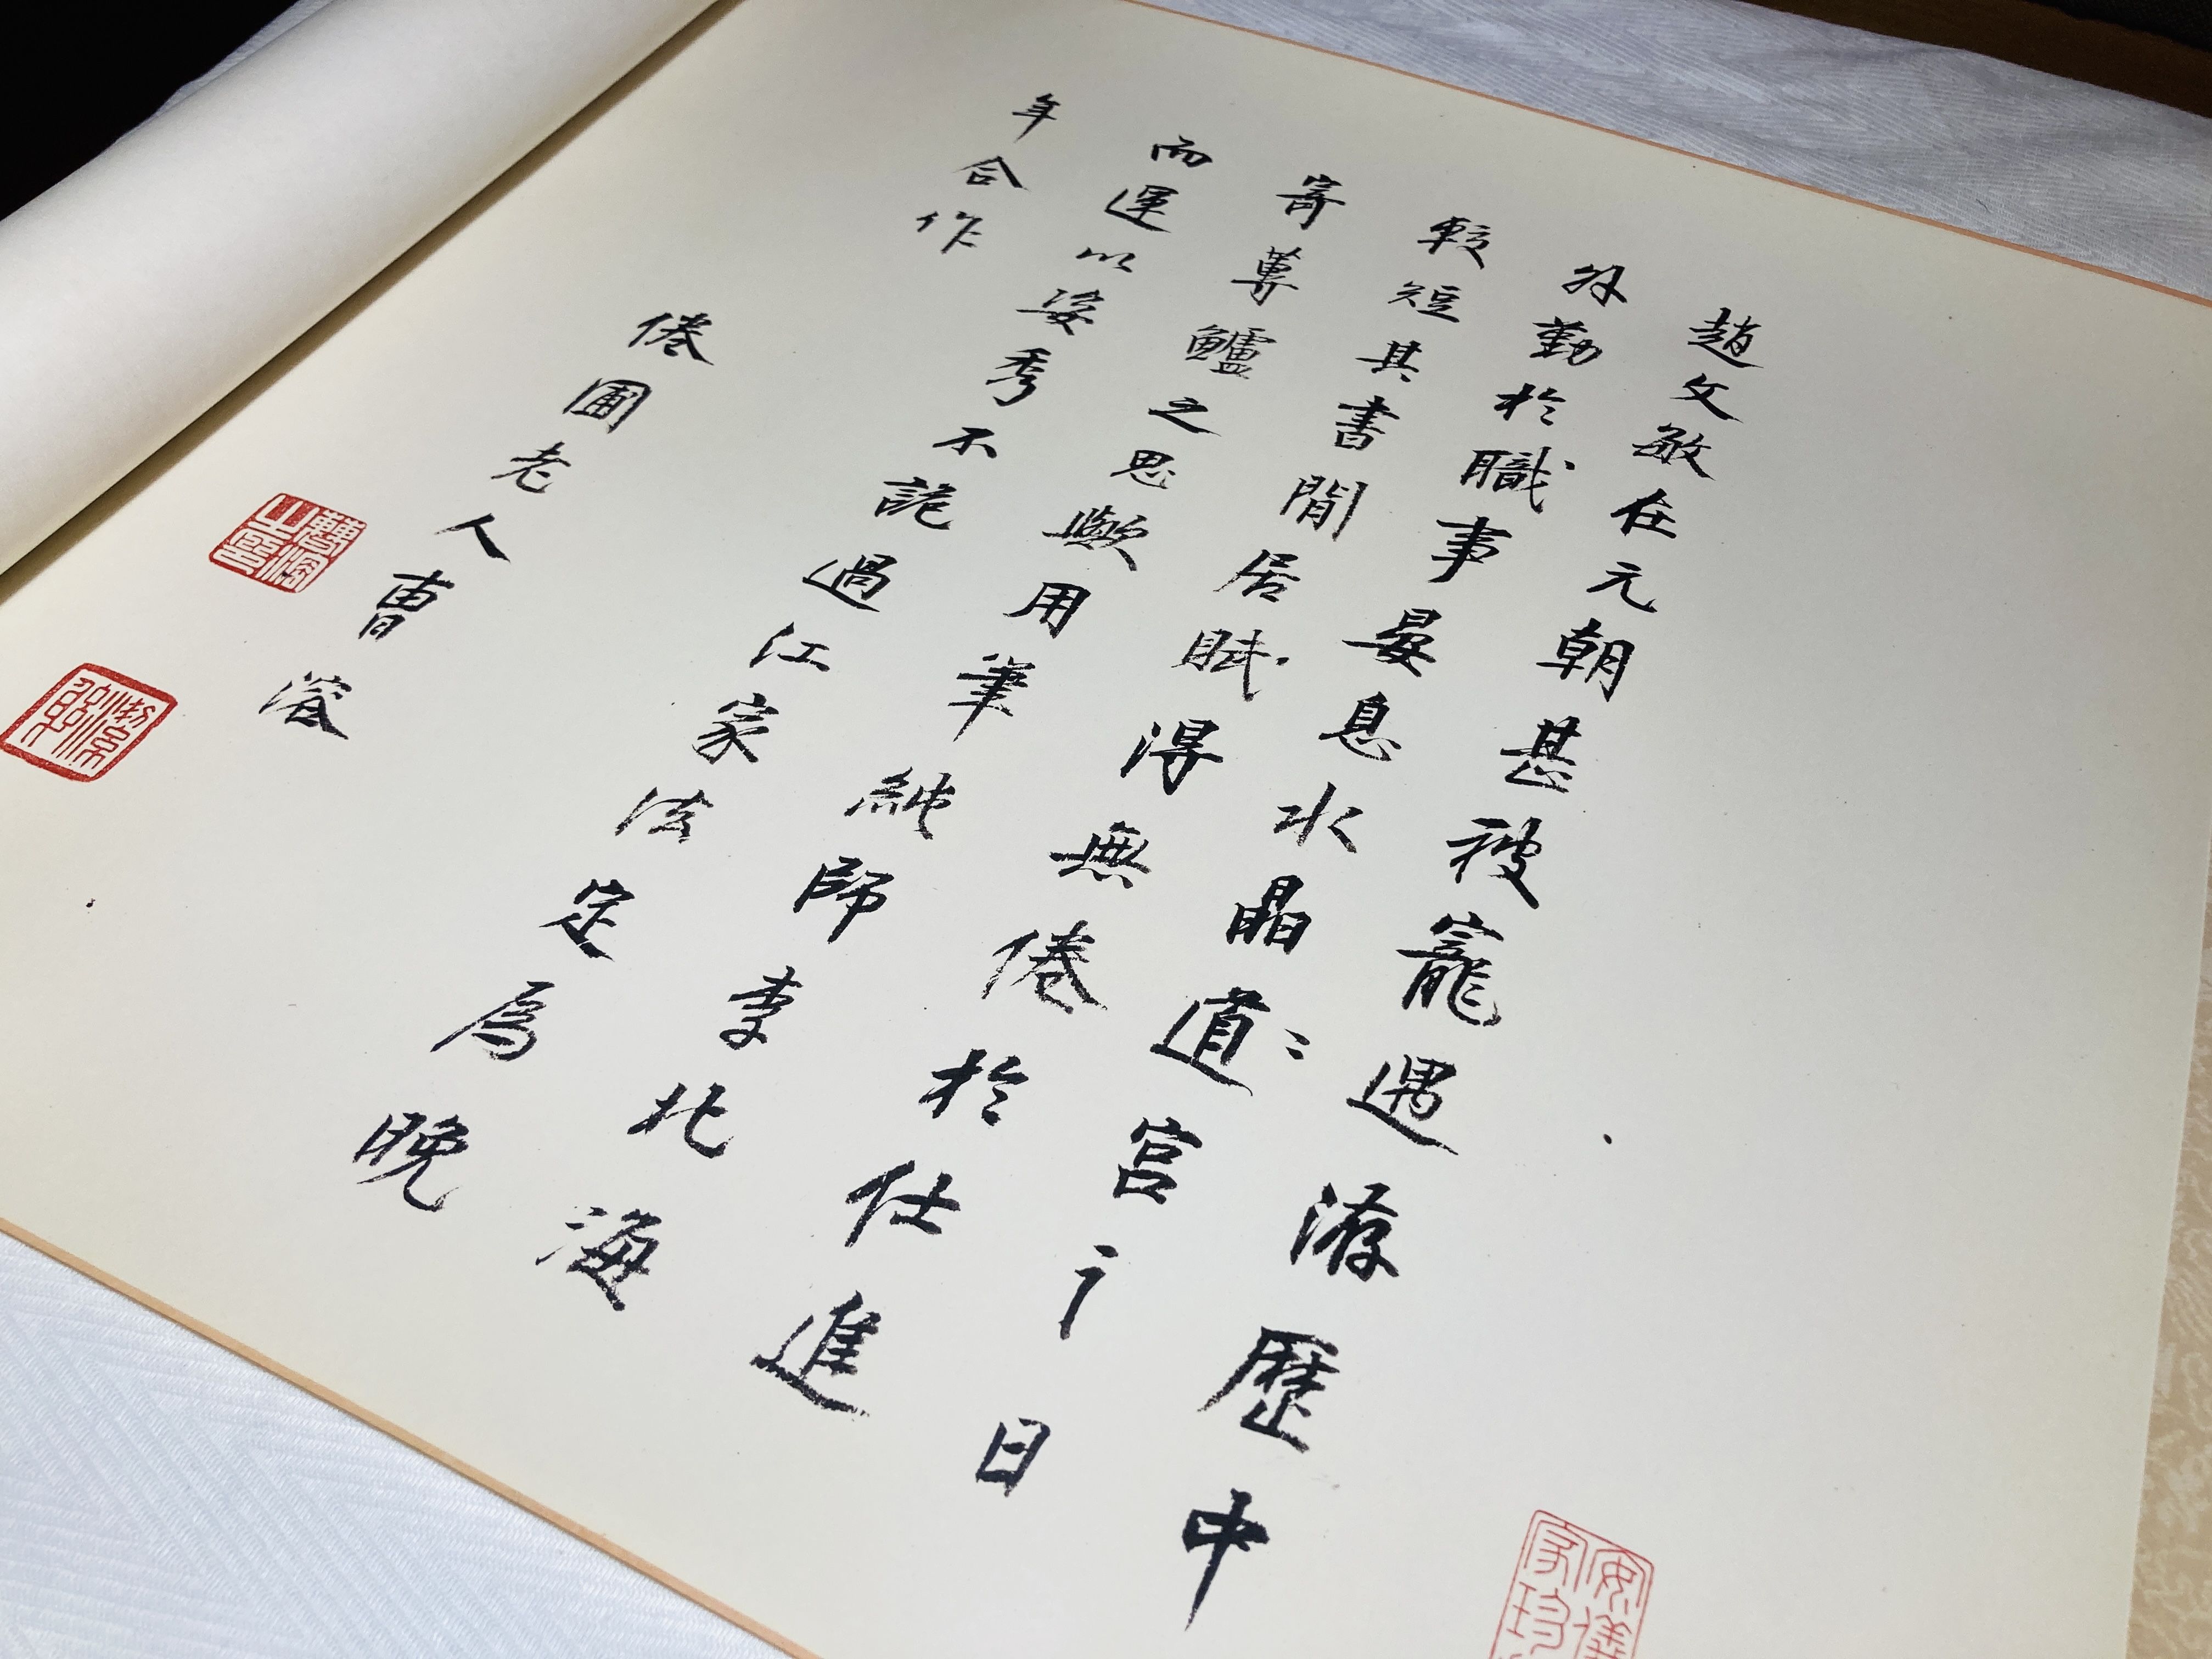 趙文敏在元朝甚被寵遇游歷中
外勤於職事晏息水晶道宮之日
較短其書閒居賦得無倦於仕進
寄蓴鱸之思歟用筆純師李北海
而運以姿秀不詭過江家法定為晚
年合作
倦圃老人曹溶
安儀
家珍